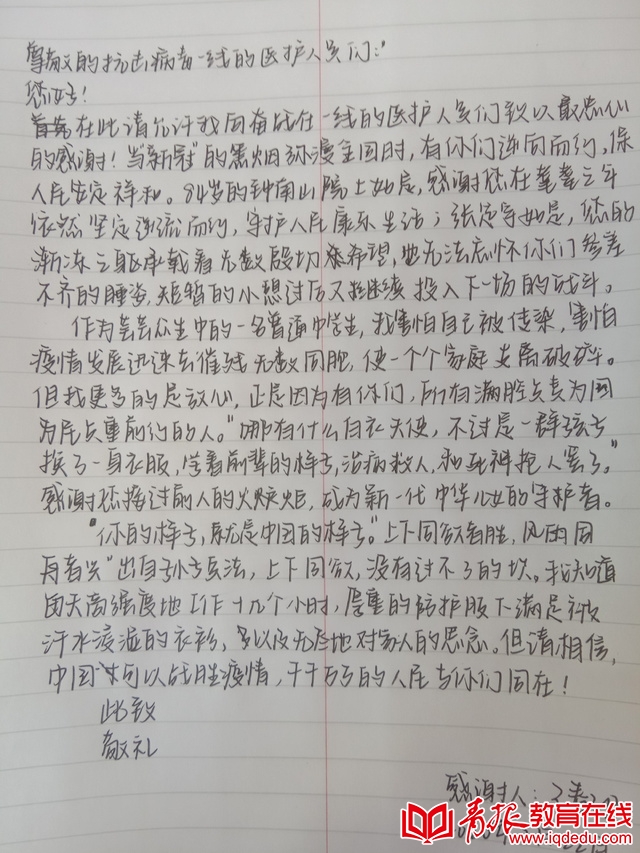 尊敬的抗击病毒一线的医护人员们：
您好！
在此请允许我向奋战在一线的医护人员们致以最忠心
的感谢！当"新冠"的黑烟弥漫全国时，有你们逆向而约，保
人民安定祥和。84岁的钟南山院士如是，感谢您在耄耋之年
依然坚定逆流而约，守护人民康乐生活；张定宇如是，您的
渐冻之躯承载着无数殷切希望，也无法忘怀你们参差
不齐的睡姿，短暂的小憩过后又继续投入下一场的战斗。
作为芸芸众生中的一名普通中学生，我害怕自己被传染，害怕
疫情发展迅速去催残无数同胞，使一个个家庭支离破碎。
但我更多的是放心，正是因为有你们，所有满腔负责为国
为民负重前约的人。"哪有什么白衣天使，不过是一群孩子
换了一身衣服，学着前辈的样子，治病救人，和死神抢人罢了。"
感谢您接过前人的火炬，成为新一代中华儿女的守护者。
"你的样子，就是中国的样子。"上下同欲者胜，风雨同
舟者兴"出自孙子兵法，上下同欲，没有过不了的坎。我知道
因天高强度地工作十几个小时，厚重的防护服下满是被
汗水浸湿的衣衫，多以及无尽地对家人的思念。但请相信，
中国可以战胜疫情，千千万万的人民与你们同在！
此致
敬礼
感谢人：
青报教育在线
www.iqdedu.com